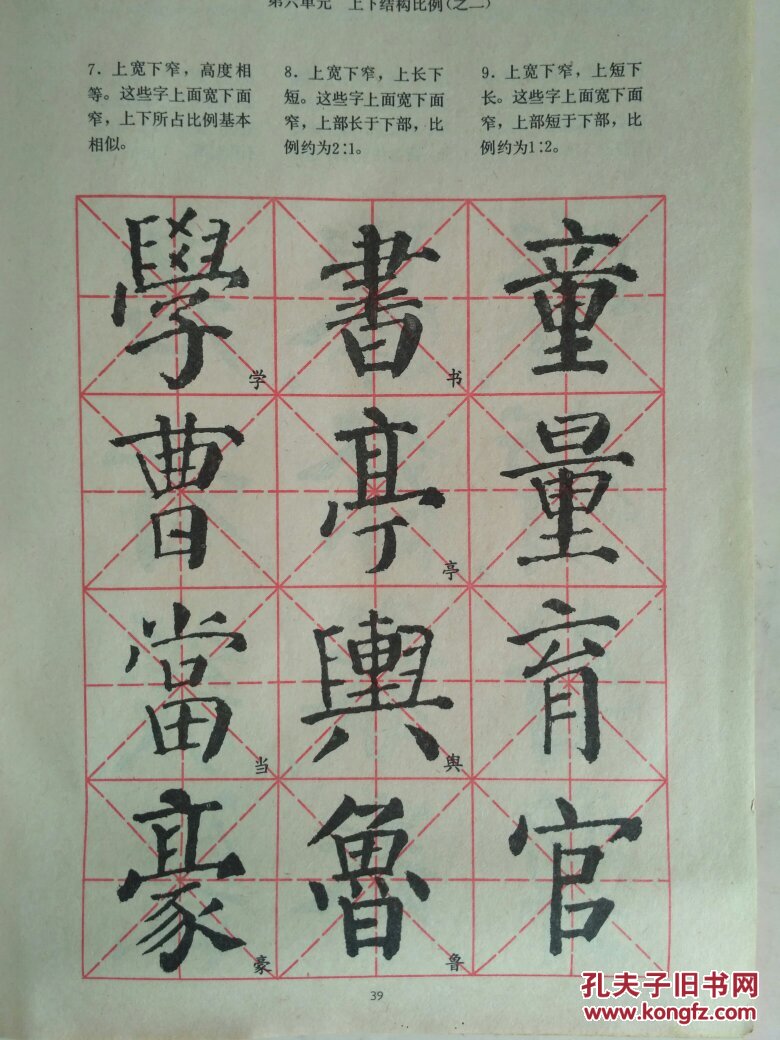 第六单元 上下结构比例(之二)
7. 上宽下窄，高度相
等。这些字上面宽下面
窄，上下所占比例基本
相似。
8. 上宽下窄，上长下
短。这些字上面宽下面
窄，上部长于下部，比
例约为2∶1。
9. 上宽下窄，上短下
长。这些字上面宽下面
窄，上部短于下部，比
例约为1∶2。
學 書 童
学 书
曹 亭 量
亭
當 輿 育
当 舆
豪 魯 官
豪 鲁
39
孔夫子旧书网
www.kongfz.com